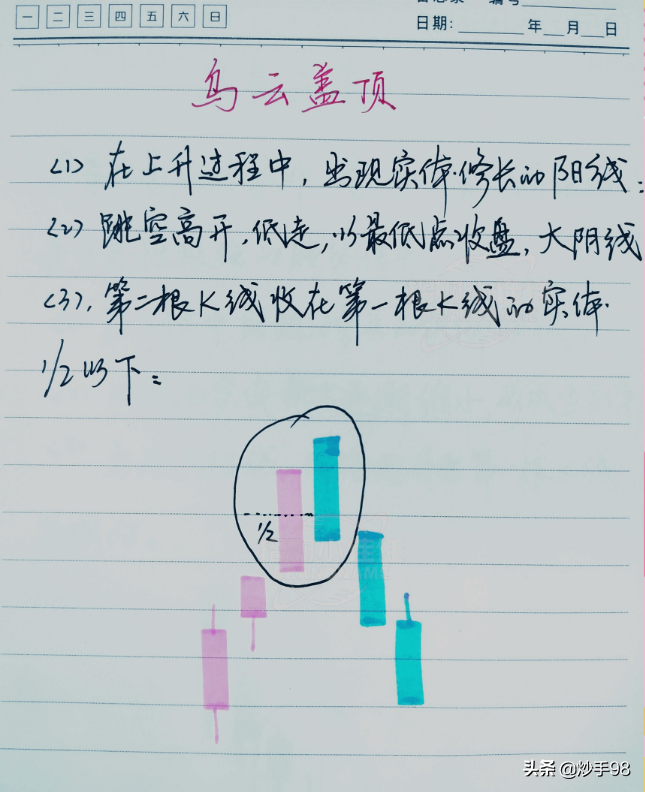 一 二 三 四 五 六 日
日期: 年 月 日
乌云盖顶
(1) 在上升过程中,出现实体修长的阳线:
(2) 跳空高开,低走,以最低点收盘,大阴线
(3),第二根K线收在第一根K线的实体
1/2以下:
1/2
头条 @炒手98